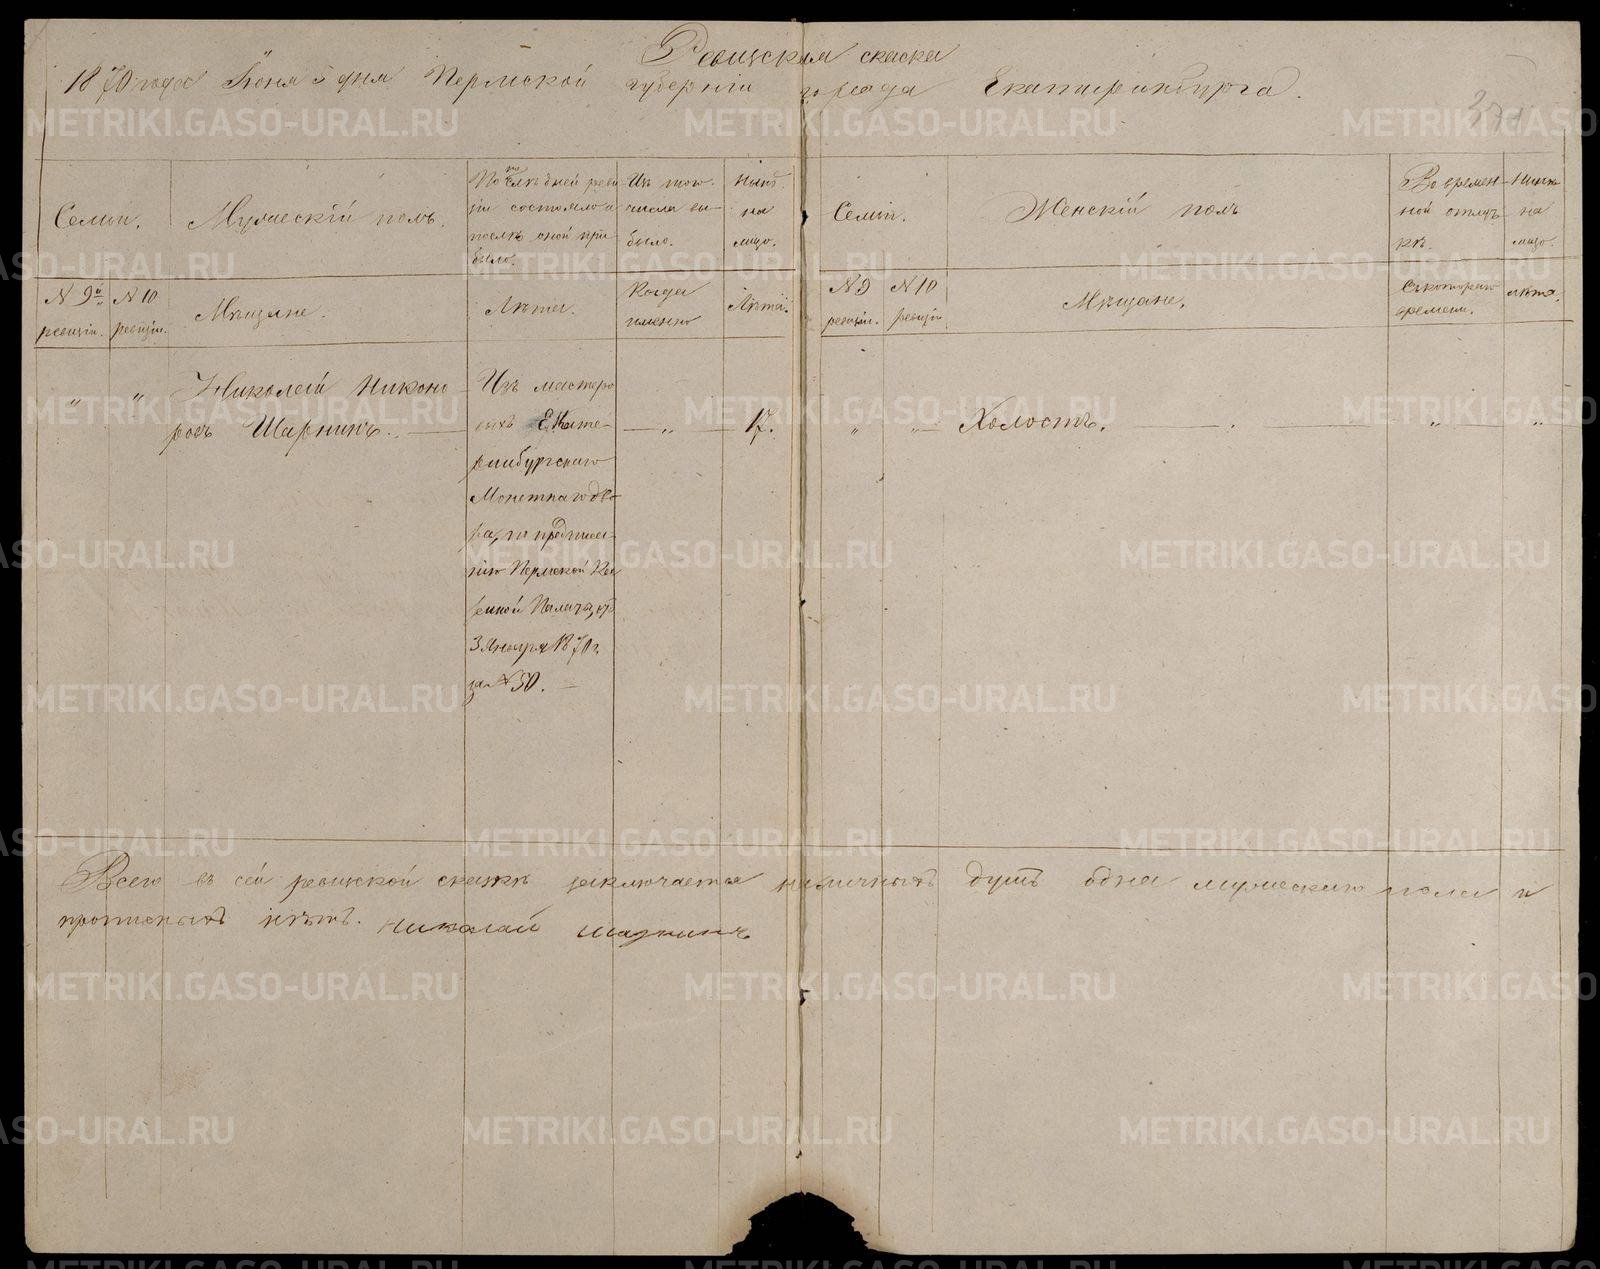 Ревизская скаска
1870 года Іюня 5 дня Пермской губерніи города Екатеринбурга.
Семьи.
Мужескій полъ.
По последней реви-
зіи состояло и
после оной при-
было.
Изъ того
числа вы-
было.
Ныне
на
лицо.
Семьи.
Женскій полъ
Во времен-
ной отлуч-
кѣ.
Ныне
на
лицо.
№ 9й
ревизіи.
№ 10
ревизіи.
Мѣщане.
Лѣта.
Когда
именно
Лѣта.
№ 9
ревизіи.
№ 10
ревизіи
Мѣщане.
Съ котораго
времени.
лѣта.
" " Николай Никоно-
ровъ Шарнинъ.
Изъ мастеро-
выхъ Екате-
ринбургскаго
Монетнаго дво-
ра, по предписа-
нію Пермской Ка-
зенной Палаты, отъ
3 Января 1870 г.
за № 50.
" 17.
" " Холостъ. " "
Всего въ сей ревизской сказкѣ заключается наличныхъ душъ одна мужескаго пола и
прописныхъ нѣтъ. Николай Шарнинъ
METRIKI.GASO-URAL.RU